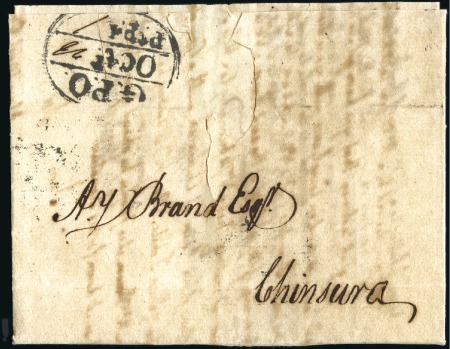 G.P.O.
OC 4
Pt pd
A. Y Brand Esqr.
Chinsura